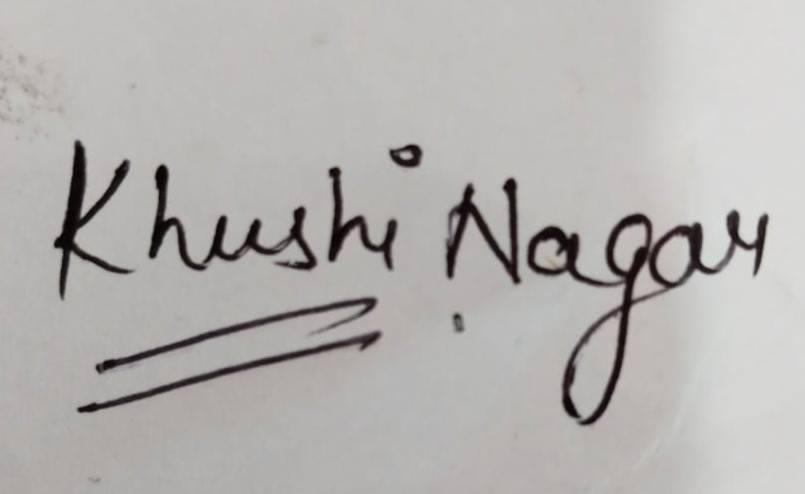 Khushi Nagar